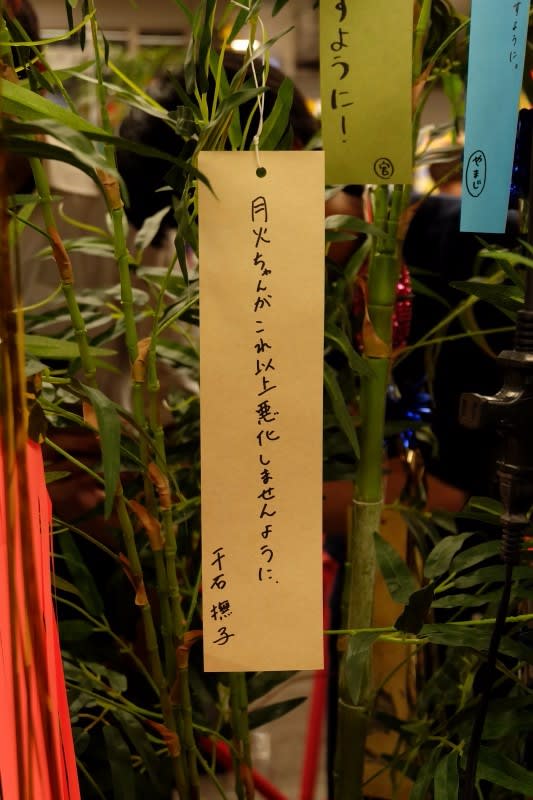 月火ちゃんがこれ以上悪化しませんように.
千石 撫子
すように！
宮
すように。
やまじ